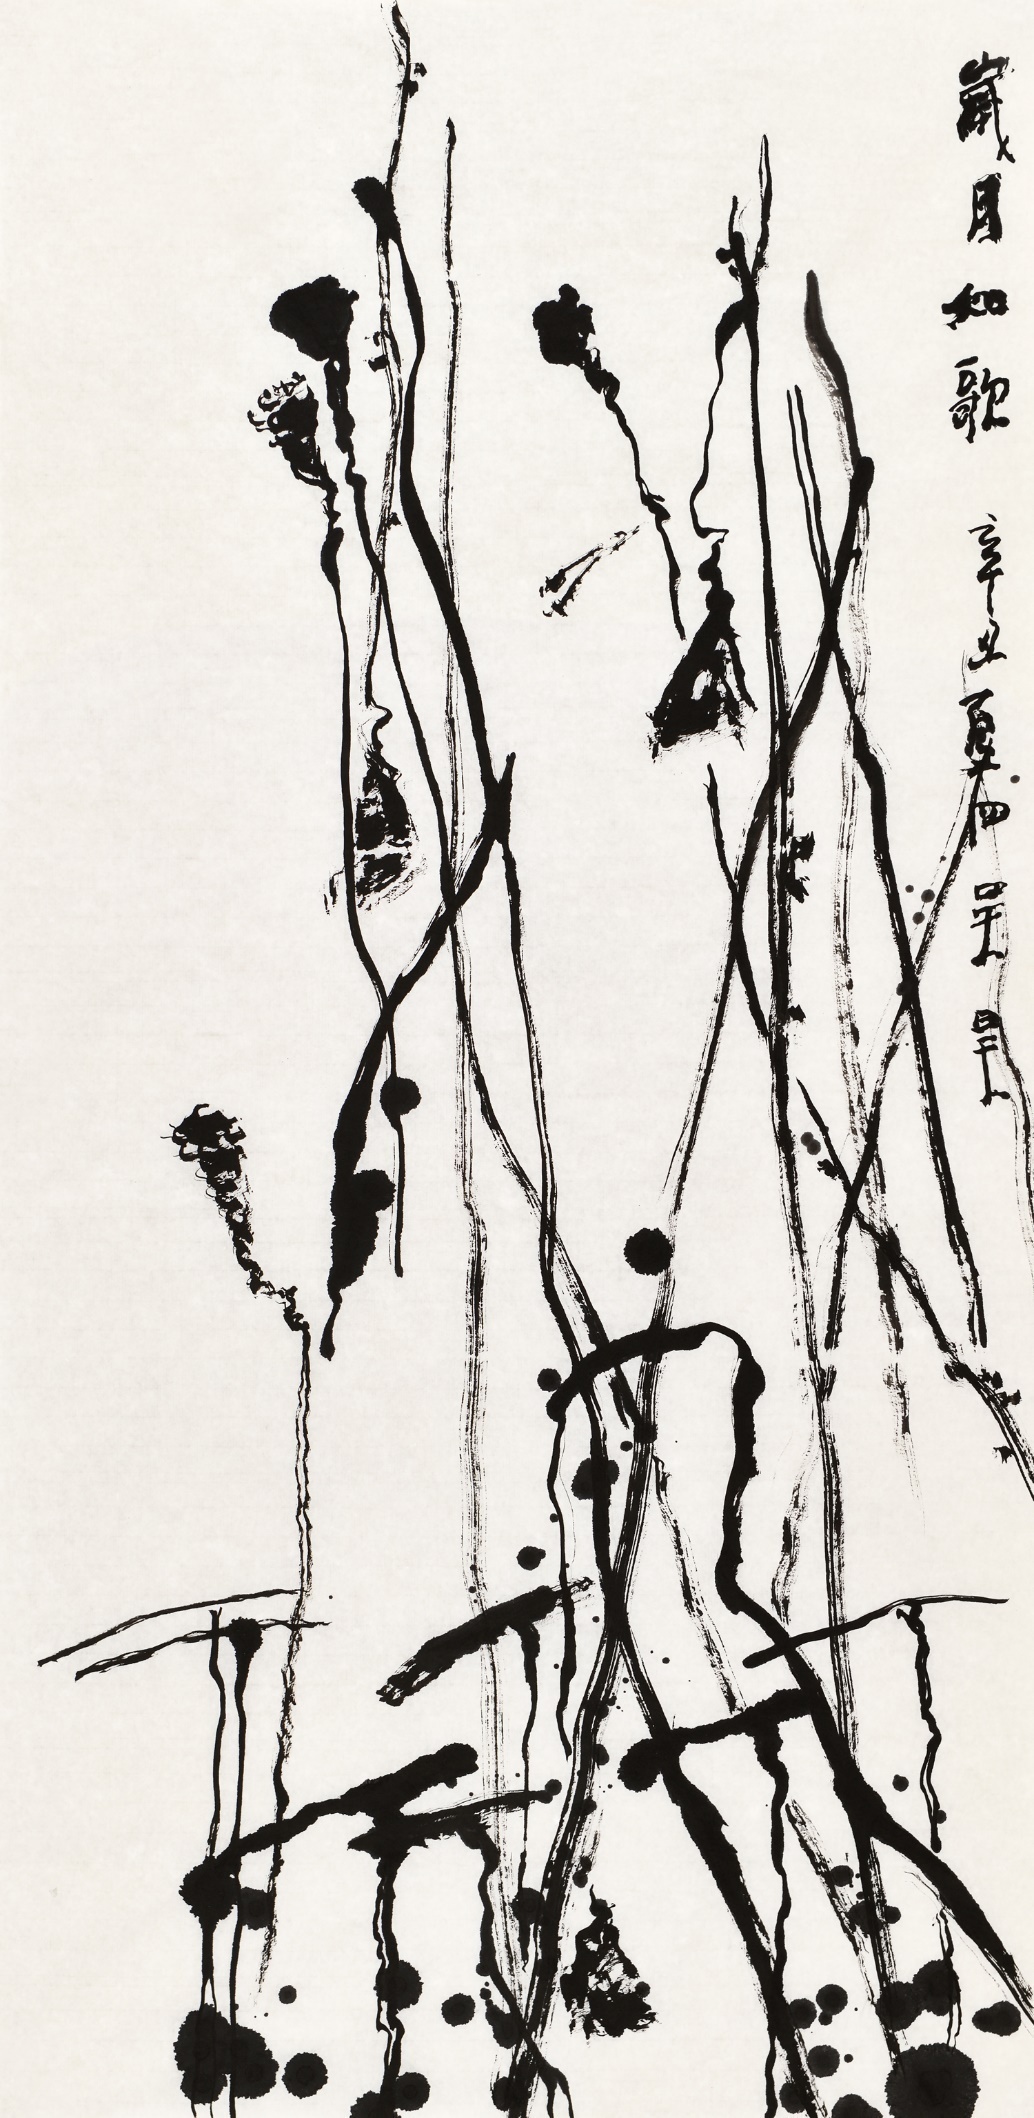 歲月如歌 辛丑夏四